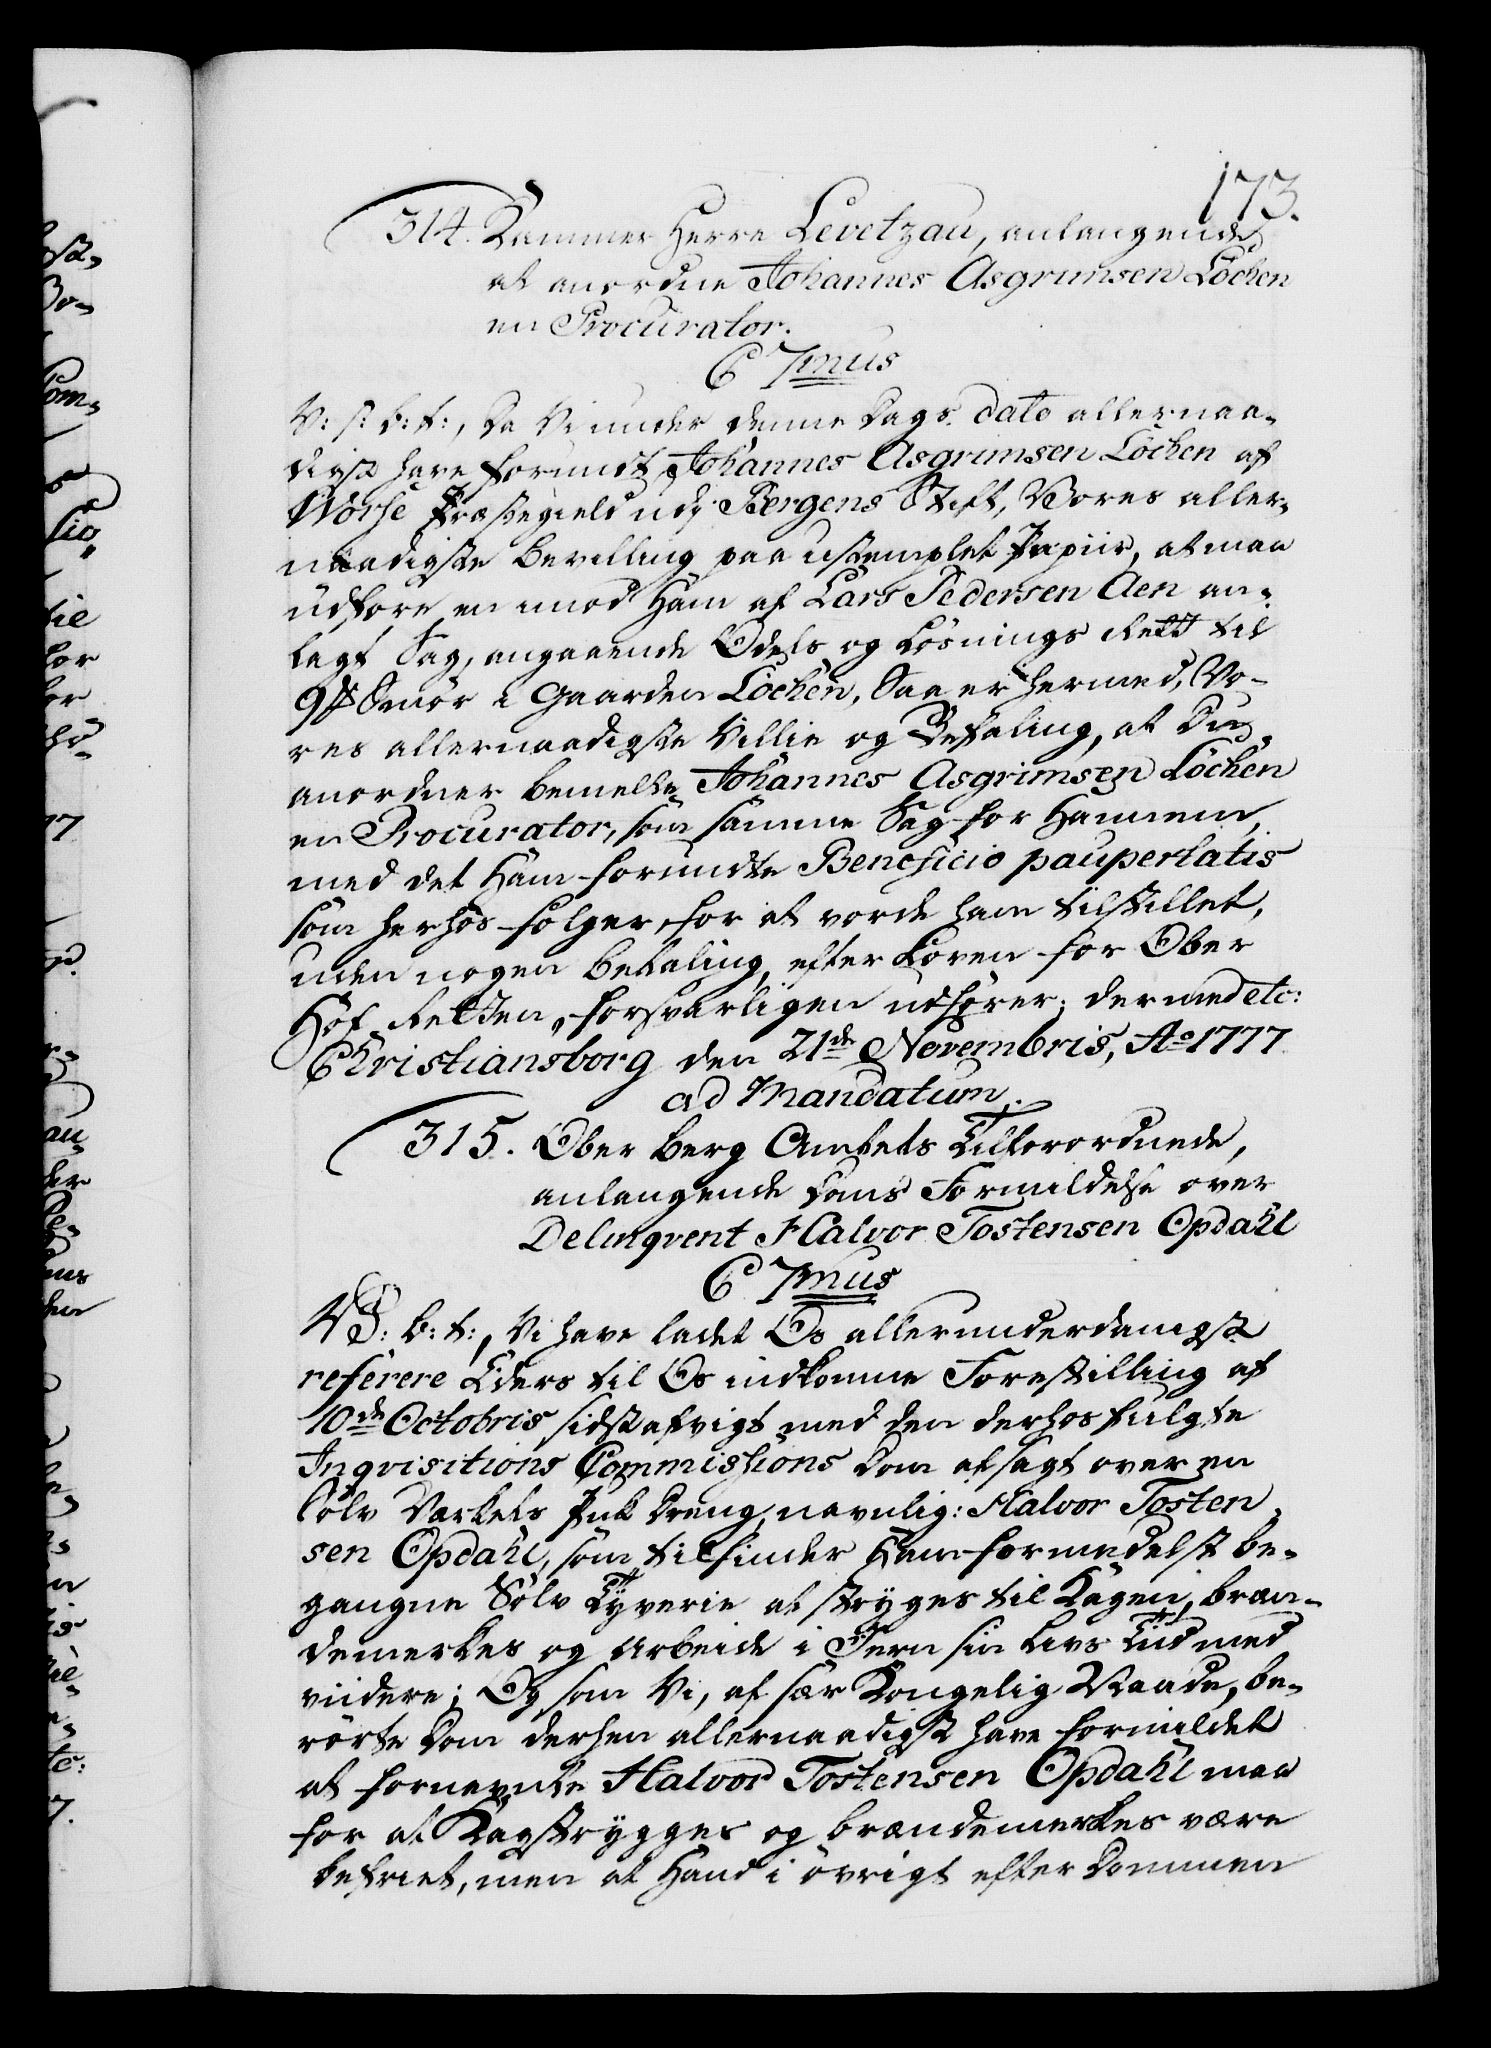 173.
314. Kammer Herre Levetzau, anlangende
at anordne Johannes Asgrimsen Löchen
en Procurator.
C 7mus
V: S: b: t:, Da Vi under denne Dags dato allernaa-
digst have forundt Johannes Asgrimsen Löchen af
Worse Præstegield udj Bergens Stift, Vores aller-
naadigste Bevilling paa ustemplet Papiir, at maa
udföre en imod Ham af Lars Pedersen Aen an-
lagt Sag, angaaende Odels og Lösnings Rett til
9 ℔ Smör i Gaarden Löchen, Saa er hermed, Vo-
res allernaadigste Villie og Befaling, at Du
anordner bemelte Johannes Asgrimsen Löchen
en Procurator, som samme Sag for Hannem,
med det Ham forundte Beneficio paupertatis
som herhos fölger for at vorde ham tilstillet,
uden nogen Betaling, efter Loven for Ober
Hof Retten, forsvarligen udförer; dermed etc:
Christiansborg den 21de Novembris, Ao 1777
ad Mandatum.
315. Ober Berg Amtets Tilforordnede,
anlangende Doms Formildelse over
Delinqvent Halvor Tostensen Opdahl
C 7mus
V S: b: t:, Vi have ladet Os allerunderdanigst
referere Eders til Os indkomne Forestilling af
10de Octobris sidstafvigt med den derhos fulgte
Inqvisitions Commissions Dom afsagt over en
Sölv Værkets Puk Dreng, navnlig: Halvor Tosten-
sen Opdahl, som tilfinder Ham formedelst be-
gangne Sölv Tyverie at stryges til Kagen, bræn-
demerkes og Arbeide i Jern sin Livs Tiid med
viidere; Og som Vi, af sær Kongelig Naade, be-
rörte Dom derhen allernaadigst have formildet
at fornevnte Halvor Tostensen Opdahl maa
for at Kagstrygges og brændemerkes være
befriet, men at Hand i övrigt efter Dommen